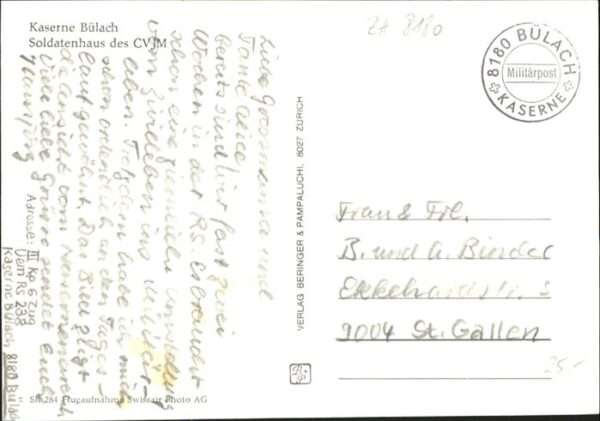 Kaserne Bülach
Soldatenhaus des CVJM
ZH 8180
8180 BÜLACH
Militärpost
KASERNE
Liebe Grossmama und
Tante
Bereits sind hier fast zwei
Wochen in der RS
schon eine
vom Zivilleben ins Militär-
leben. Trotzdem habe ich mich
schon ordentlich an den Tages-
lauf gewöhnt. Das Bild zeigt
die Ansicht vom Kasernenareal
Viele liebe Grüsse sendet Euch
Adresse: III Kp. 6 Zug
Uem RS 238
Kaserne Bülach 8180 Bülach
VERLAG BERINGER & PAMPALUCHI, 8027 ZÜRICH
Frau & Frl.
B. und A. Binder
Ekkehardstr.
9004 St. Gallen
25.-
Flugaufnahme Swissair Photo AG